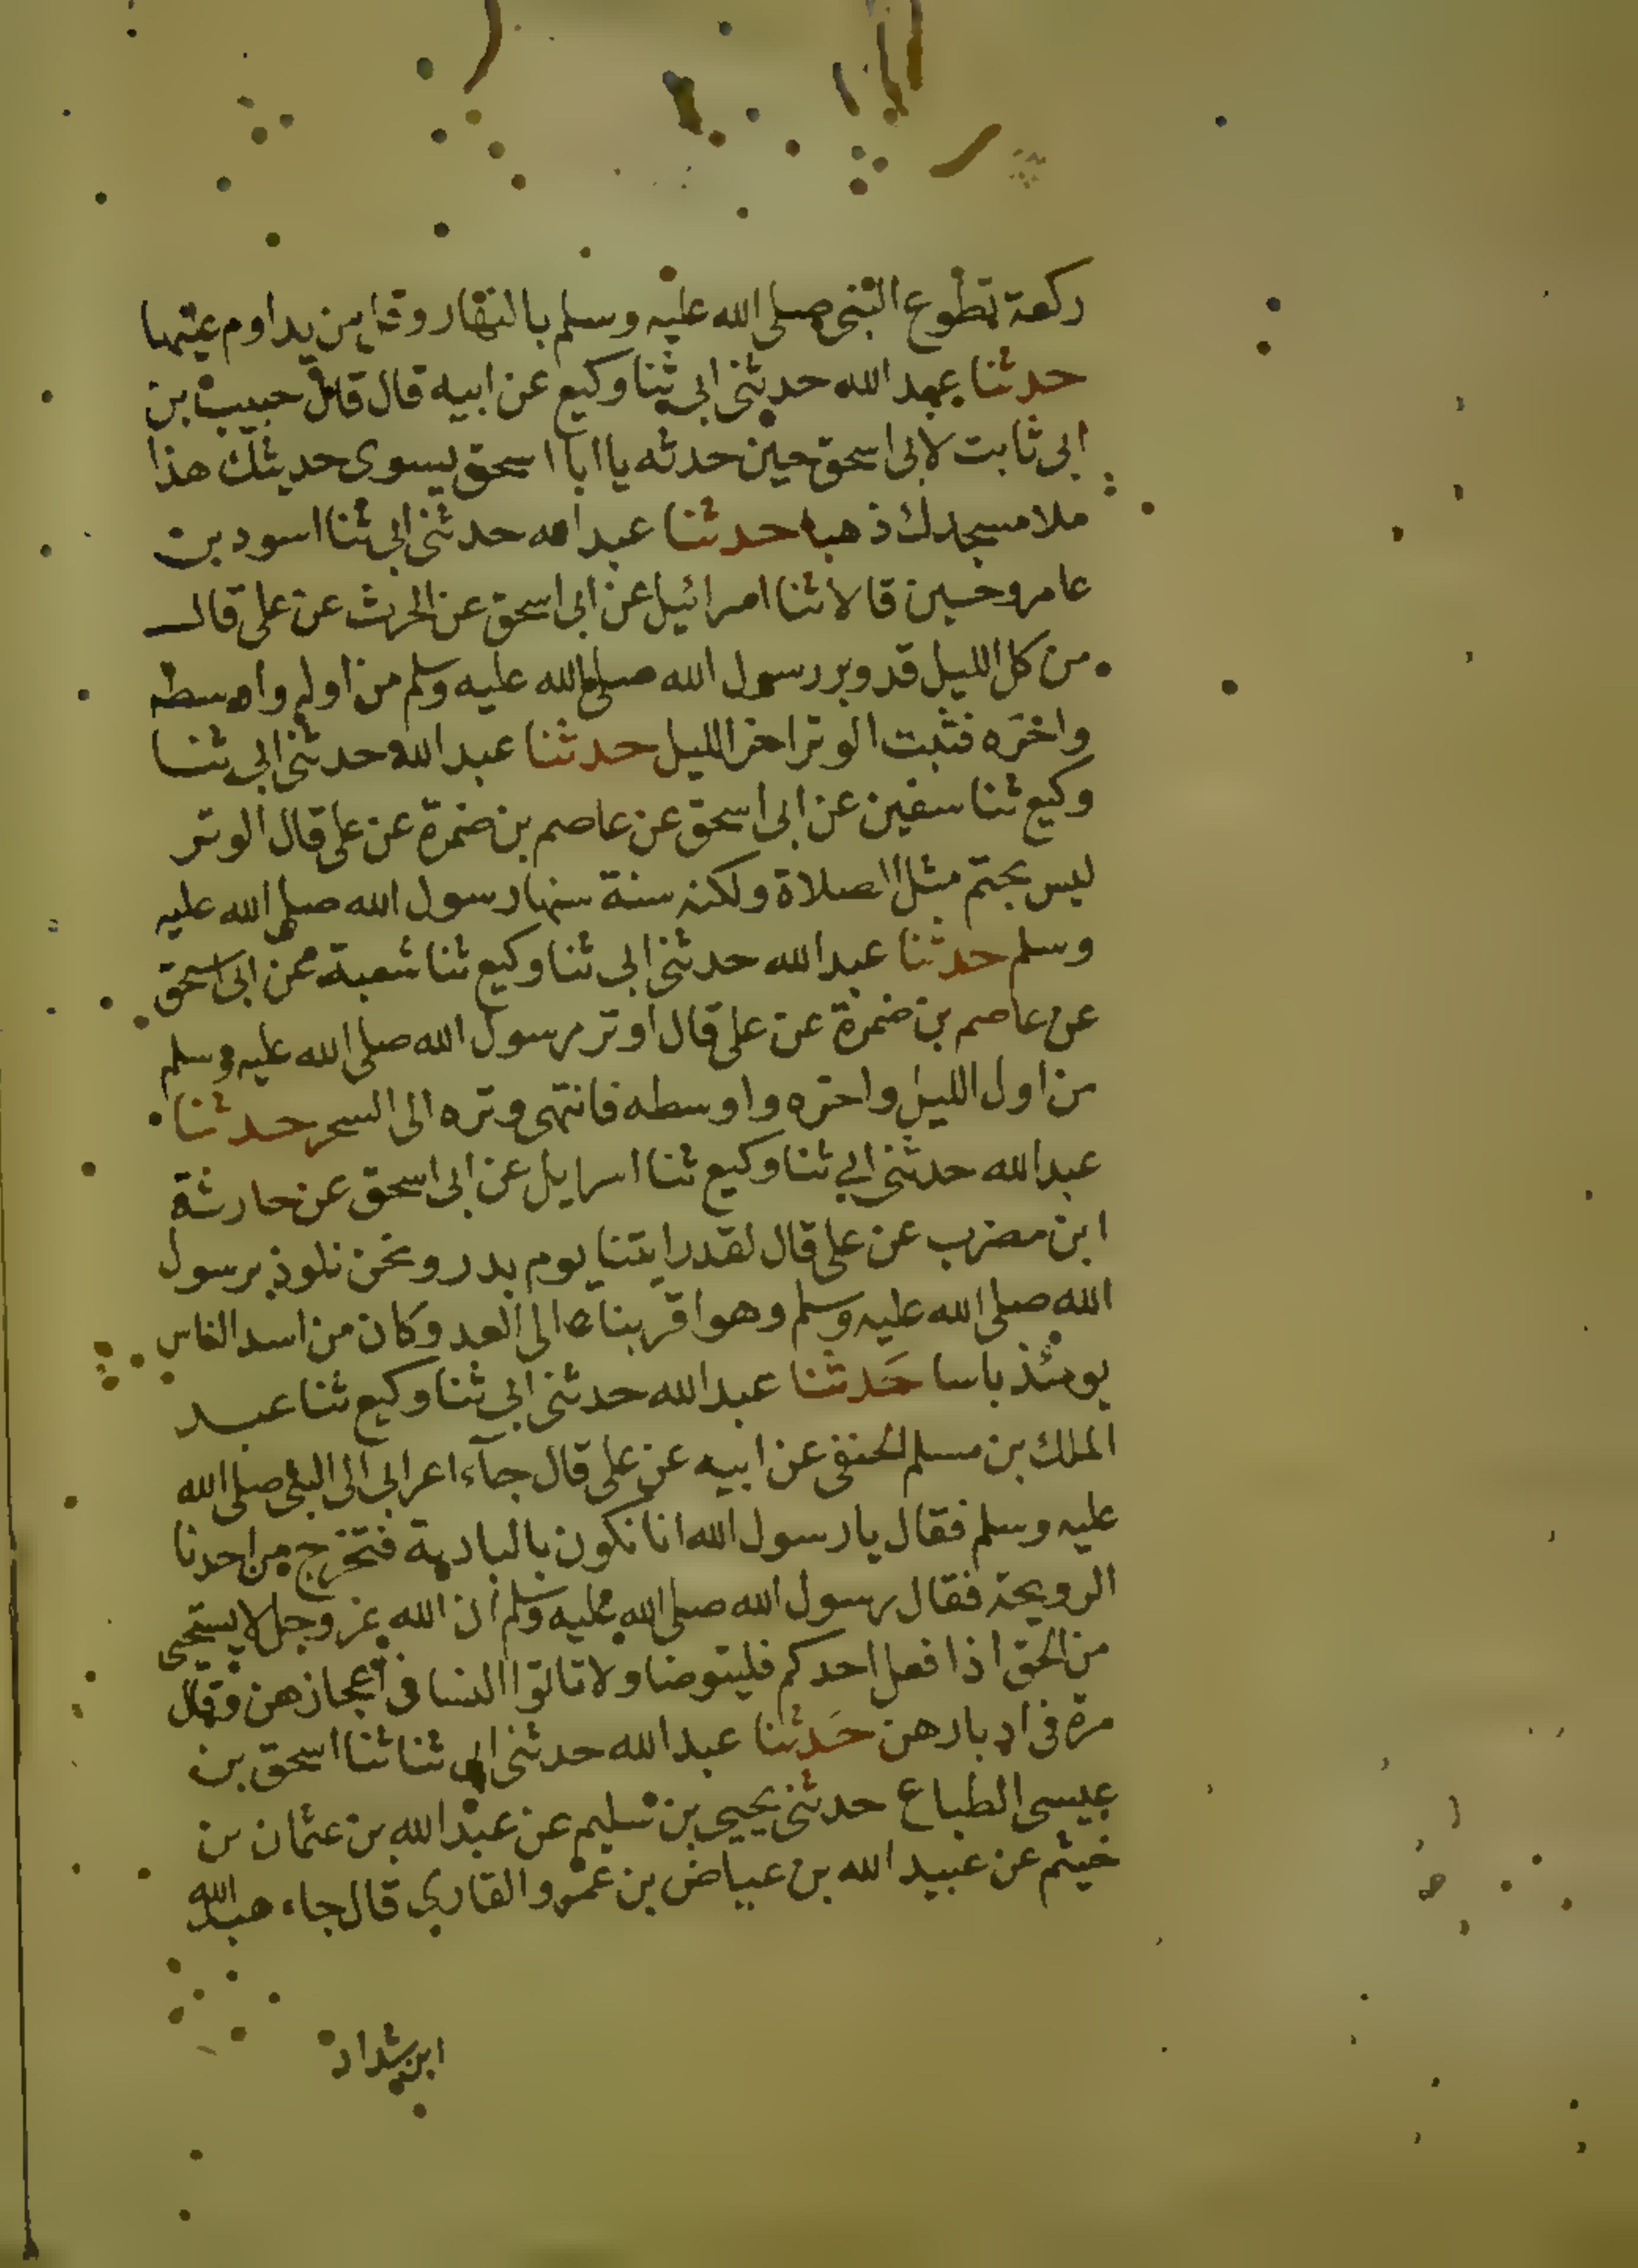 ركعة تطوع النبى صلى الله عليه وسلم بالنهار وقل من يداوم عليها
حدثنا عبد الله حدثنى ابى ثنا وكيع عن ابيه قال قال حبيب بن
ابى ثابت لابى اسحق حين حدثه يا ابا اسحق يسوى حديثك هذا
ملا مسجدك ذهبا حدثنا عبد الله حدثنى ابى ثنا اسود بن
عامر وحسين قالا ثنا اسرائيل عن ابى اسحق عن الحرث عن على قال
من كل الليل قد وتر رسول الله صلى الله عليه وسلم من اوله واوسطه
واخره فثبت الوتر اخر الليل حدثنا عبد الله حدثنى ابى ثنا
وكيع ثنا سفين عن ابى اسحق عن عاصم بن ضمرة عن على قال الوتر
ليس بحتم مثل الصلاة ولكنه سنة سنها رسول الله صلى الله عليه
وسلم حدثنا عبد الله حدثنى ابى ثنا وكيع ثنا شعبة عن ابى اسحق
عن عاصم بن ضمرة عن على قال اوتر رسول الله صلى الله عليه وسلم
من اول الليل واخره واوسطه فانتهى وتره الى السحر حدثنا
عبد الله حدثنى ابي ثنا وكيع ثنا اسرايل عن ابى اسحق عن حارثة
ابن مضرب عن على قال لقد رايتنا يوم بدر ونحن نلوذ برسول
الله صلى الله عليه وسلم وهو اقربنا الى العدو وكان من اسد الناس
يومئذ باسا حَدثنا عبد الله حدثنى ابى ثنا وكيع ثنا عبد
الملك بن مسلم الحنفى عن ابيه عن على قال جآء اعرابى الى النبى صلى الله
عليه وسلم فقال يا رسول الله انا نكون بالبادية فتخرج من احدنا
الرويحة فقال رسول الله صلى الله عليه وسلم ان الله عز وجل لا يستحيى
من الحق اذا فعل احدكم فليتوضا ولا تاتوا النسا فى أعجازهن وقال
مرة فى ادبارهن حَدثنا عبد الله حدثنى ابى ثنا ثنا اسحق بن
عيسى الطباع حدثنى يحيى بن سليم عن عبد الله بن عثمان بن
خيثم عن عبيد الله بن عياض بن عمرو القاري قال جاء عبد الله
ابن شداد